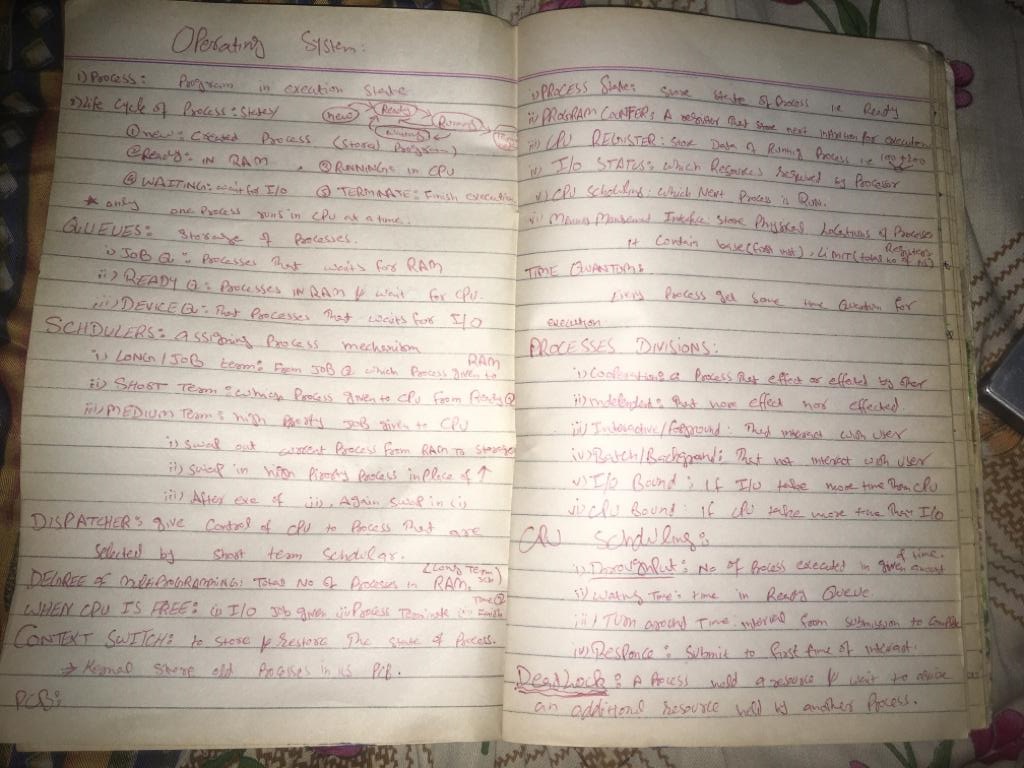 Operating System:
1) Process: Program in execution state
2) Life Cycle of Process: states
new Ready Running Waiting
① new: Created Process (stored Program)
② Ready: IN RAM, ③ RUNNING: in CPU
④ WAITING: wait for I/O ⑤ TERMINATE: Finish execution
* only one Process runs in CPU at a time.
QUEUES: Storage of Processes.
i) JOB Q: Processes That waits for RAM
ii) READY Q: Processes IN RAM & wait for CPU.
iii) DEVICE Q: That Processes That waits for I/O
SCHDULERS: assigning Process mechanism
i) LONG/JOB term: From JOB Q which Process given to RAM
ii) SHORT Term: which Process given to CPU From Ready Q
iii) MEDIUM Term: high JOB given to CPU
i) swap out current Process From RAM to storage
ii) swap in high Process in place of ↑
iii) After exe of ii), Again swap in (i)
DISPATCHER: give Control of CPU to Process That are
selected by short term schdular.
DEGREE OF: Total No of Processes in RAM. (Long Term sch)
WHEN CPU IS FREE: (i) I/O Job given ii) Process Terminate
CONTEXT SWITCH: to store & Restore The state of Process.
→ Kernal store old Processes in its PCB.
PCB:
i) PROCESS State: store state of Process ie Ready
ii) PROGRAM COUNTER: A register That store next for execution
iii) CPU REGISTER: store Data of Running Process i.e
iv) I/O STATUS: which Resources required by Processor
v) CPU Schduling: which Next Process is Run.
vi) store Physical Locations of Processes
it Contain base(first inst), LIMIT(total no of) Registers
TIME QUANTUM:
Every Process get some time for
execution
PROCESSES DIVISIONS:
i) Process That effect or effeted by other
ii) independent: That none effect nor effected.
iii) Interactive/foreground: That interact with user
iv) Batch/Background: That not interact with user
v) I/O Bound: if I/O take more time Than CPU
vi) CPU Bound: if CPU take more time Than I/O
CPU Schduling:
i) No of Process executed in given amount of time.
ii) Waiting Time: time in Ready Queue
iii) Turn around Time: interval from submission to
iv) Responce: Submit to first time of interact.
DeadLock: A Process hold a resource & wait to
an additional resource held by another Process.